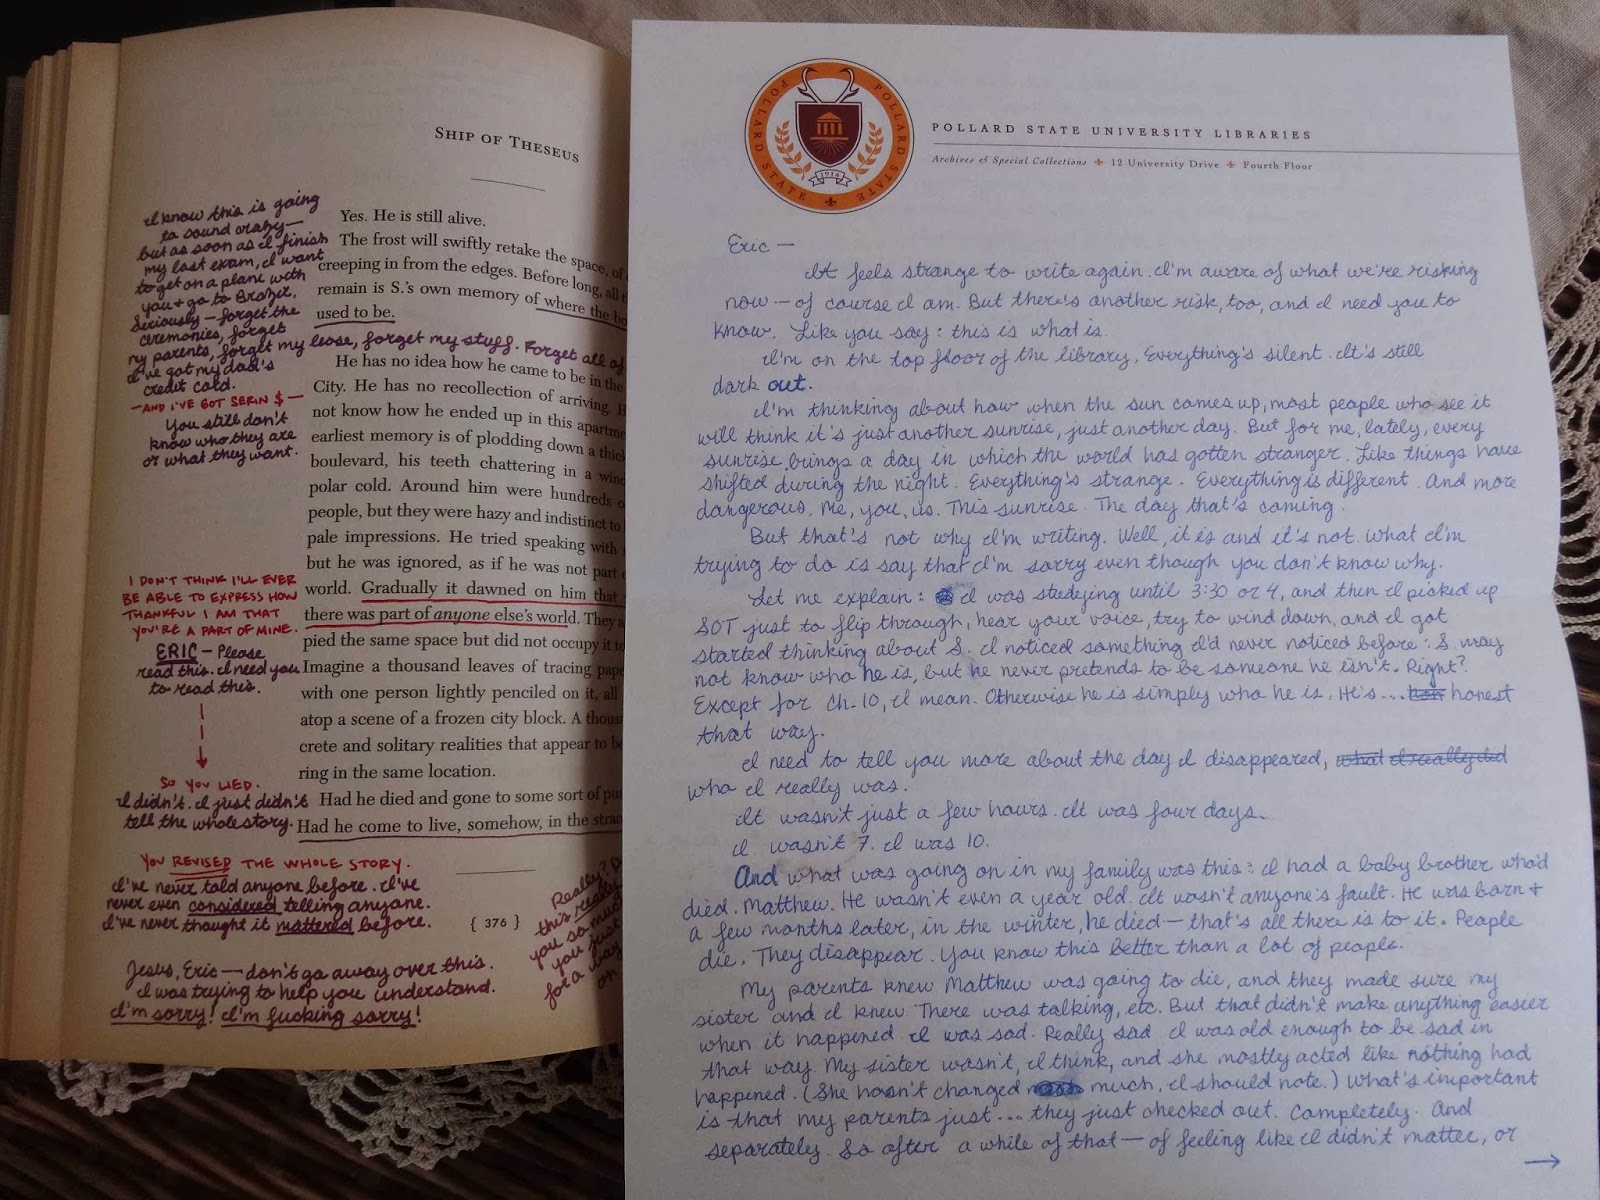 SHIP OF THESEUS
I know this is going
to sound crazy—
but as soon as I finish
my last exam, I want
to get on a plane with
you + go to Brazil,
Seriously — forget the
ceremonies, forget
my parents, forget my lease, forget my stuff. Forget all of
I've got my dad's
credit card.
—AND I'VE GOT SERIN $—
You still don't
know who they are
or what they want.
I DON'T THINK I'LL EVER
BE ABLE TO EXPRESS HOW
THANKFUL I AM THAT
YOU'RE A PART OF MINE.
ERIC — Please
read this. I need you
to read this.
SO YOU LIED.
I didn't. I just didn't
tell the whole story.
YOU REVISED THE WHOLE STORY.
I've never told anyone before. I've
never even considered telling anyone.
I've never thought it mattered before.
Jesus, Eric — don't go away over this.
I was trying to help you understand.
I'm sorry! I'm fucking sorry!
Yes. He is still alive.
The frost will swiftly retake the space, of
creeping in from the edges. Before long, all
remain is S.'s own memory of where the
used to be.
He has no idea how he came to be in the
City. He has no recollection of arriving.
not know how he ended up in this
earliest memory is of plodding down a
boulevard, his teeth chattering in a
polar cold. Around him were hundreds
people, but they were hazy and indistinct to
pale impressions. He tried speaking with
but he was ignored, as if he was not part
world. Gradually it dawned on him that
there was part of anyone else's world. They
pied the same space but did not occupy it
Imagine a thousand leaves of tracing
with one person lightly penciled on it, all
atop a scene of a frozen city block. A
crete and solitary realities that appear to
ring in the same location.
Had he died and gone to some sort of
Had he come to live, somehow, in the
{ 376 }
Really?
this really
you so much
you just
for a way
on
POLLARD STATE POLLARD STATE
1914
POLLARD STATE UNIVERSITY LIBRARIES
Archives & Special Collections 12 University Drive Fourth Floor
Eric —
It feels strange to write again. I'm aware of what we're risking
now — of course I am. But there's another risk, too, and I need you to
know. Like you say: this is what is.
I'm on the top floor of the library. Everything's silent. It's still
dark out.
I'm thinking about how when the sun comes up, most people who see it
will think it's just another sunrise, just another day. But for me, lately, every
sunrise brings a day in which the world has gotten stranger. Like things have
shifted during the night. Everything's strange. Everything is different. And more
dangerous. Me, you, us. This sunrise. The day that's coming.
But that's not why I'm writing. Well, it is and it's not. What I'm
trying to do is say that I'm sorry even though you don't know why.
Let me explain: I was studying until 3:30 or 4, and then I picked up
SOT just to flip through, hear your voice, try to wind down, and I got
started thinking about S. I noticed something I'd never noticed before: S. may
not know who he is, but he never pretends to be someone he isn't. Right?
Except for Ch. 10, I mean. Otherwise he is simply who he is. He's... honest
that way.
I need to tell you more about the day I disappeared, what I really did
who I really was.
It wasn't just a few hours. It was four days.
I wasn't 7. I was 10.
And what was going on in my family was this: I had a baby brother who'd
died. Matthew. He wasn't even a year old. It wasn't anyone's fault. He was born +
a few months later, in the winter, he died — that's all there is to it. People
die. They disappear. You know this better than a lot of people.
My parents knew Matthew was going to die, and they made sure my
sister and I knew. There was talking, etc. But that didn't make anything easier
when it happened. I was sad. Really sad. I was old enough to be sad in
that way. My sister wasn't, I think, and she mostly acted like nothing had
happened. (She hasn't changed much, I should note.) What's important
is that my parents just... they just checked out. Completely. And
separately. So after a while of that — of feeling like I didn't matter, or